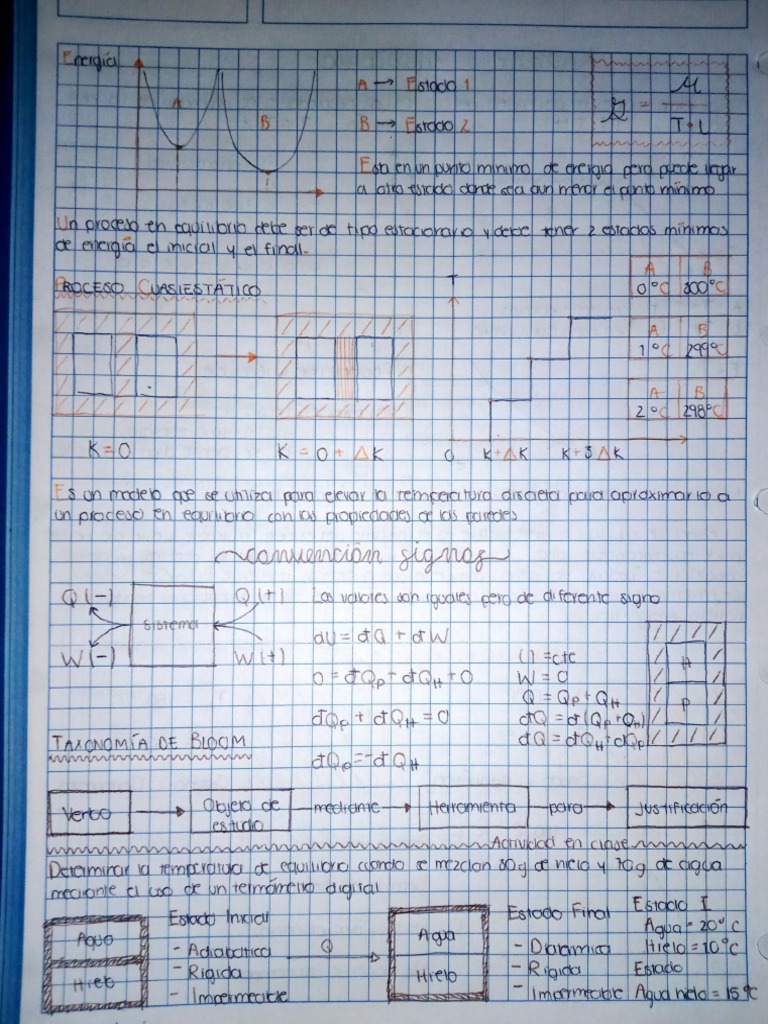 Energía
A
B
A → Estado 1
B → Estado 2
T · L
Esta en un punto mínimo de energía pero puede llegar
a otro estado donde sea aun menor el punto mínimo
Un proceso en equilibrio debe ser de tipo estacionario y debe tener 2 estados mínimos
de energía el inicial y el final.
PROCESO CUASIESTÁTICO
T
A B
0°C 300°C
A B
1°C 299°C
A B
2°C 298°C
K = 0
K = 0 + ΔK
0 K+ΔK K+3ΔK
Es un modelo que se utiliza para elevar la temperatura discreta para aproximarlo a
un proceso en equilibrio con las propiedades de las paredes
convención signos
Q (-) Q (+)
Sistema
W (-) W (+)
Los valores son iguales pero de diferente signo
dU = đQ + đW
0 = đQp + đQH + 0
đQp + đQH = 0
đQp = -đQH
U = ctc
W = 0
Q = Qp + QH
đQ = đ(Qp + QH)
đQ = đQH + đQp
H
P
TAXONOMÍA DE BLOOM
Verbo → Objeto de estudio — mediante → Herramienta — para → Justificación
Actividad en clase
Determinar la temperatura de equilibrio cuando se mezclan 80g de hielo y 70g de agua
mediante el uso de un termómetro digital
Agua
Hielo
Estado Inicial
- Adiabatica
- Rigida
- Impermeable
Q
Agua
Hielo
Estado Final
- Diatermica
- Rigida
- Impermeable
Estado I
Agua = 20°C
Hielo = 10°C
Estado
Agua hielo = 15°C